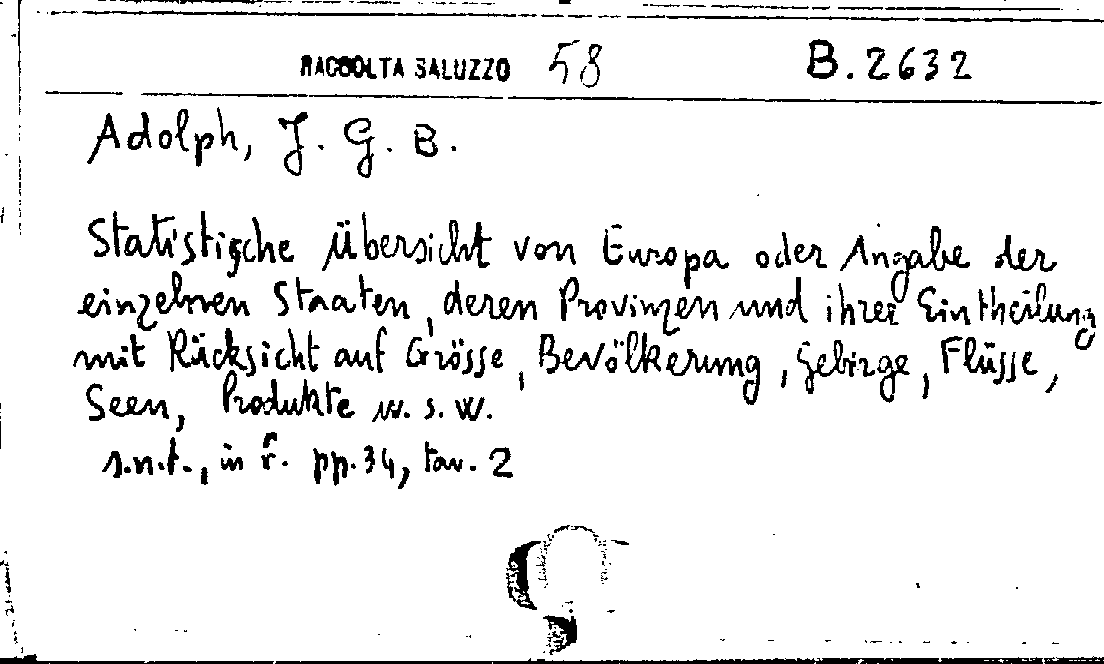 RACCOLTA SALUZZO 58 B.2632
Adolph, J. G. B.
Statistische Übersicht von Europa oder Angabe der
einzelnen Staaten, deren Provinzen und ihrer Eintheilung
mit Rücksicht auf Grösse, Bevölkerung, Gebirge, Flüsse,
Seen, Produkte u. s. w.
s.n.t., in f°. pp. 34, tav. 2